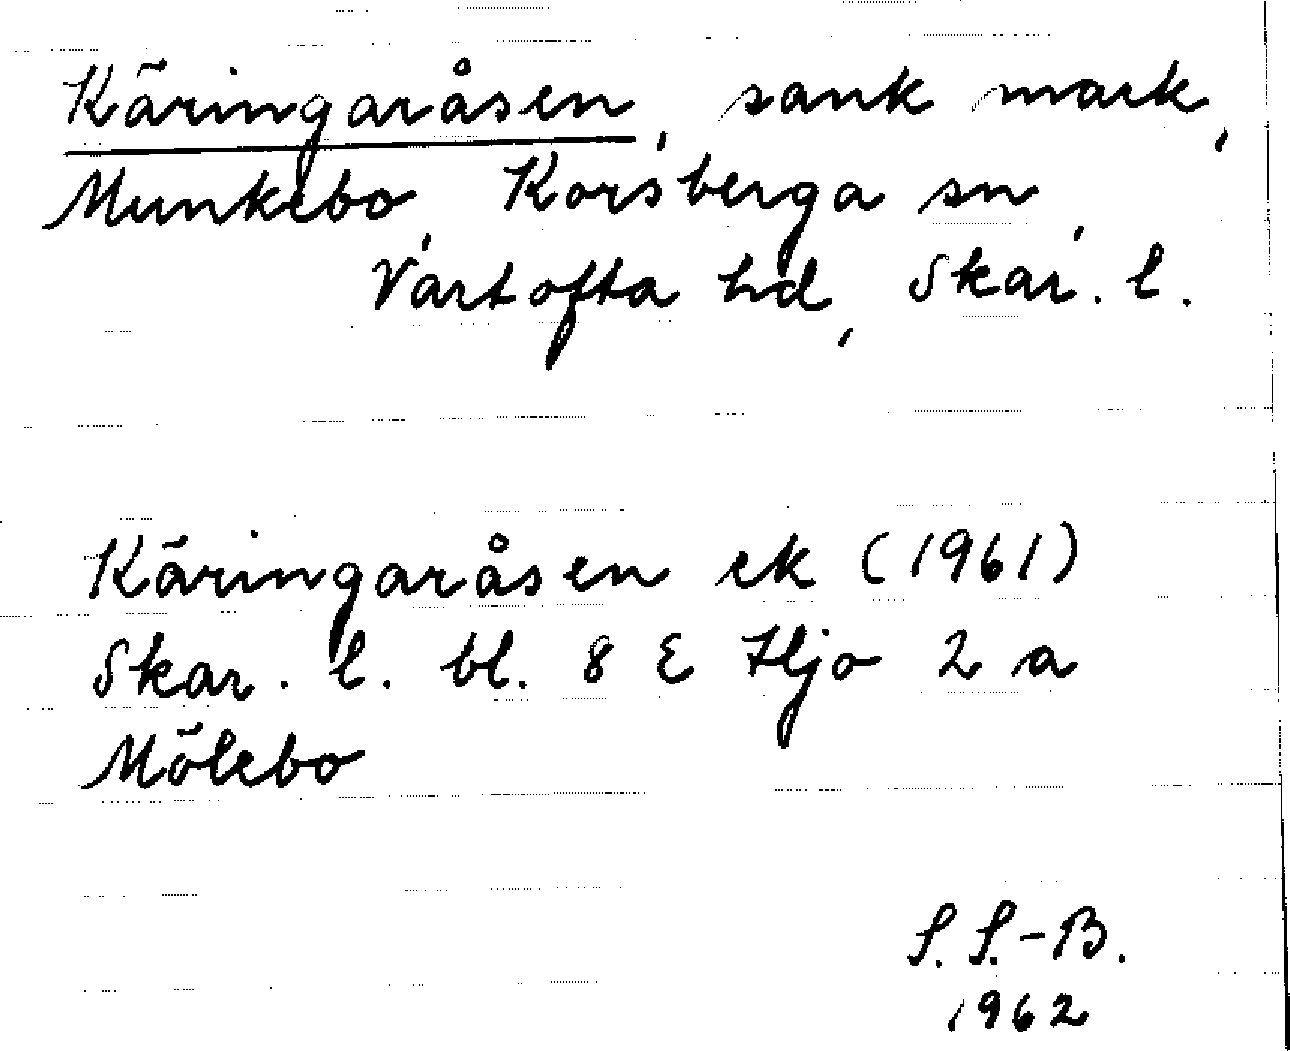 Käringaråsen, sank mark,
Munkebo, Korsberga sn,
Vartofta hd, Skar. l.
Käringaråsen ek (1961)
Skar. l. bl. 8 E Hjo 2 a
Mölebo
S. S.-B.
1962